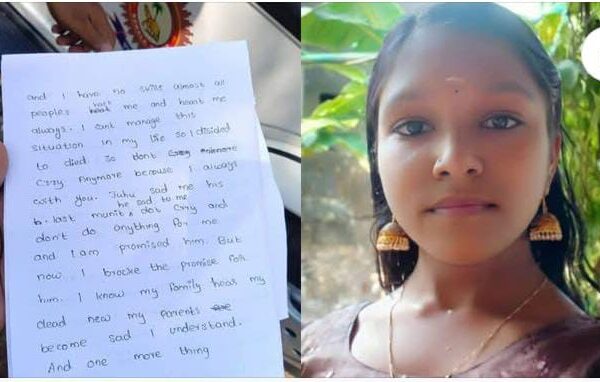 and I have no smile almost all
peoples hate me and heart me
always. I cant manage this
situation in my life so I disided
to died so don't
Crry Anymore because I always
with you. Juhu sad me his
he sad to me
b. last munit dot Crry and
don't do anything for me
and I am promised him. But
now I brocke the promise for
him. I know my family hear my
dead new my Parents
become sad I understand.
And one more thing